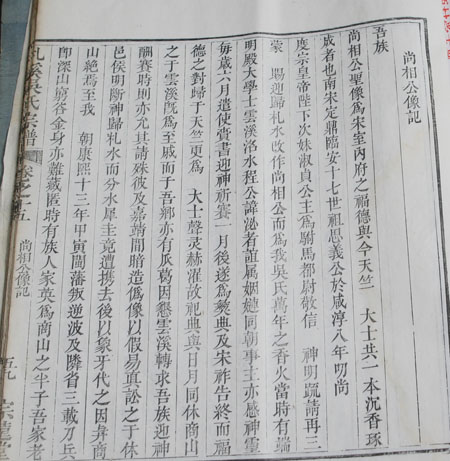 尚相公像記
吾族
尚相公聖像爲宋室內府之福德與今天竺　大士共一本沉香琢
成者也南宋定鼎臨安十七世祖思義公於咸淳八年叨尚
度宗皇帝陛下次妹淑貞公主爲駙馬都尉敬信　神明疏請再三
蒙　賜迎歸札水改作尚相公而爲我吳氏萬年之香火當時有端
明殿大學士雲溪洛水程公諱泌者誼屬姻婕同朝事主亦感神靈
每歲六月遣使賫書迎神祈賽一月後遂爲彝典及宋祚告終而福
德之對歸于天竺更爲　大士聲灵赫濯故祀典與日月同休商山
之于雲溪旣爲至戚而子吾鄉亦有瓜葛因恳雲溪轉求吾族迎神
酬賽時則亦允其請殊彼及嘉靖間暗造僞像以假易真訟之于休
邑侯明斷神歸札水而分水犀圭竟遭携去後以象牙代之因弃商
山絶焉至我　朝康熙十三年甲寅閩藩叛逆波及隣省三載刀兵
卽深山窮谷金身亦難藏匿時有族人家英爲商山之半子吾家老
札溪吳氏宗譜
卷之十五
尚相公像記
五九